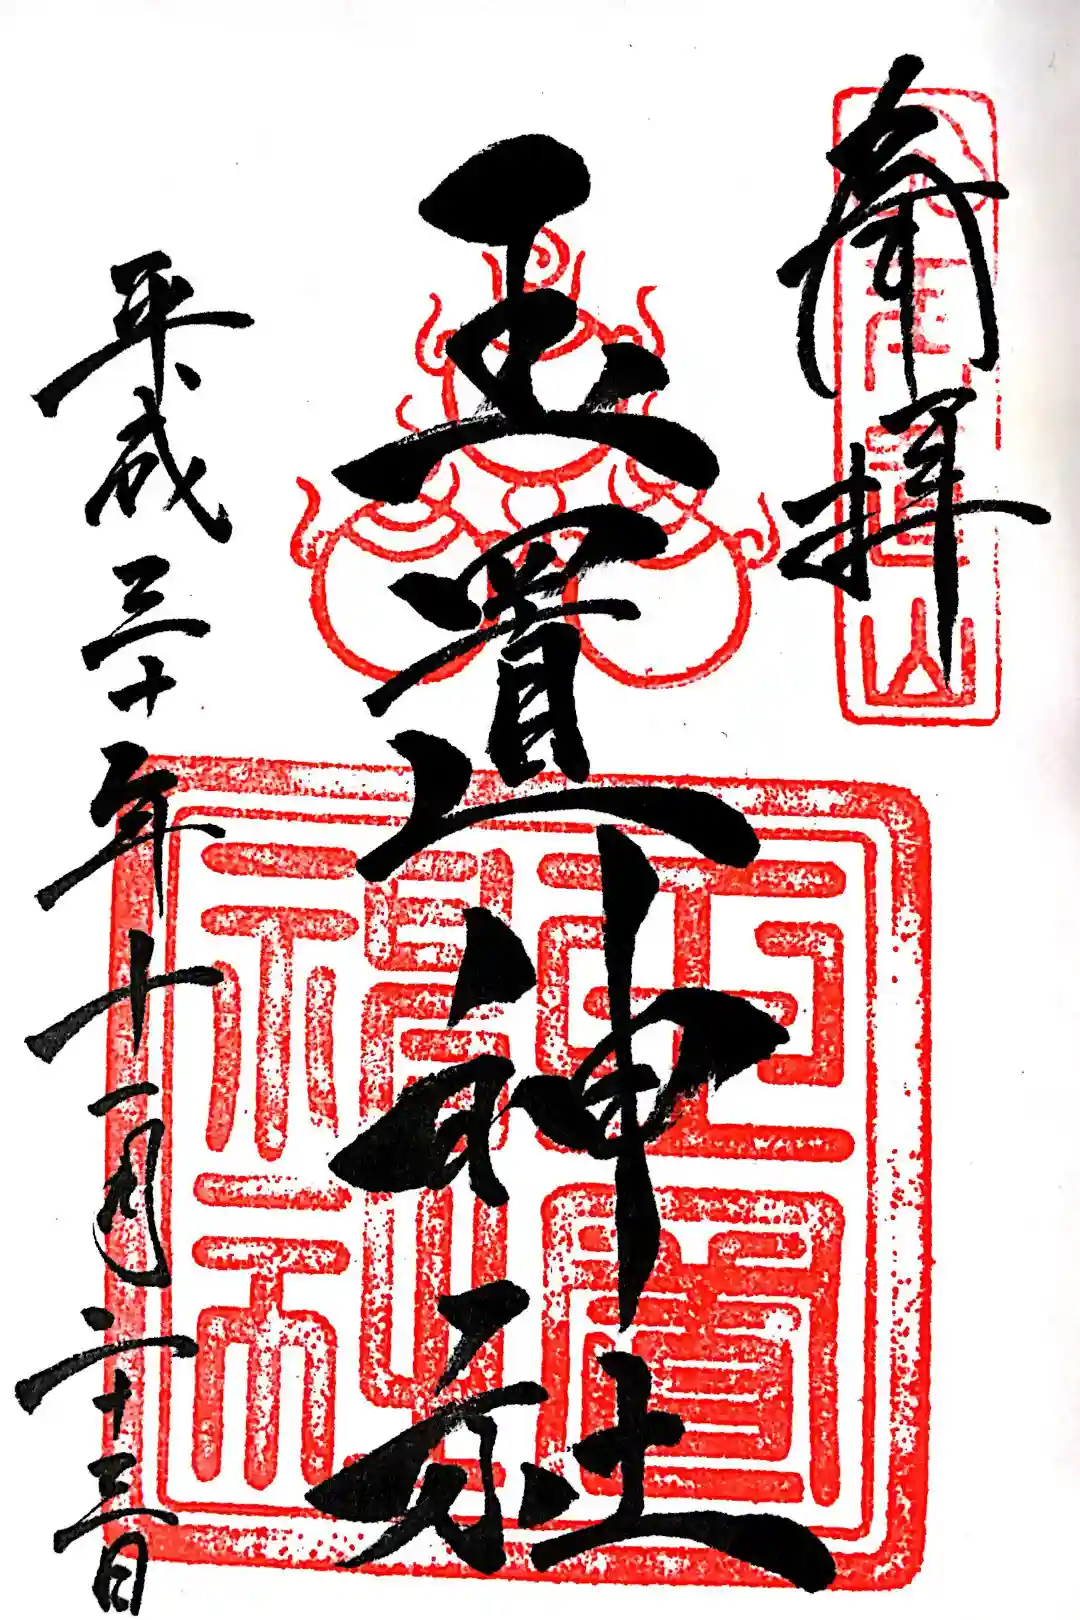 奉拝
玉置山
玉置神社
玉置神社
平成三十年十一月二十三日